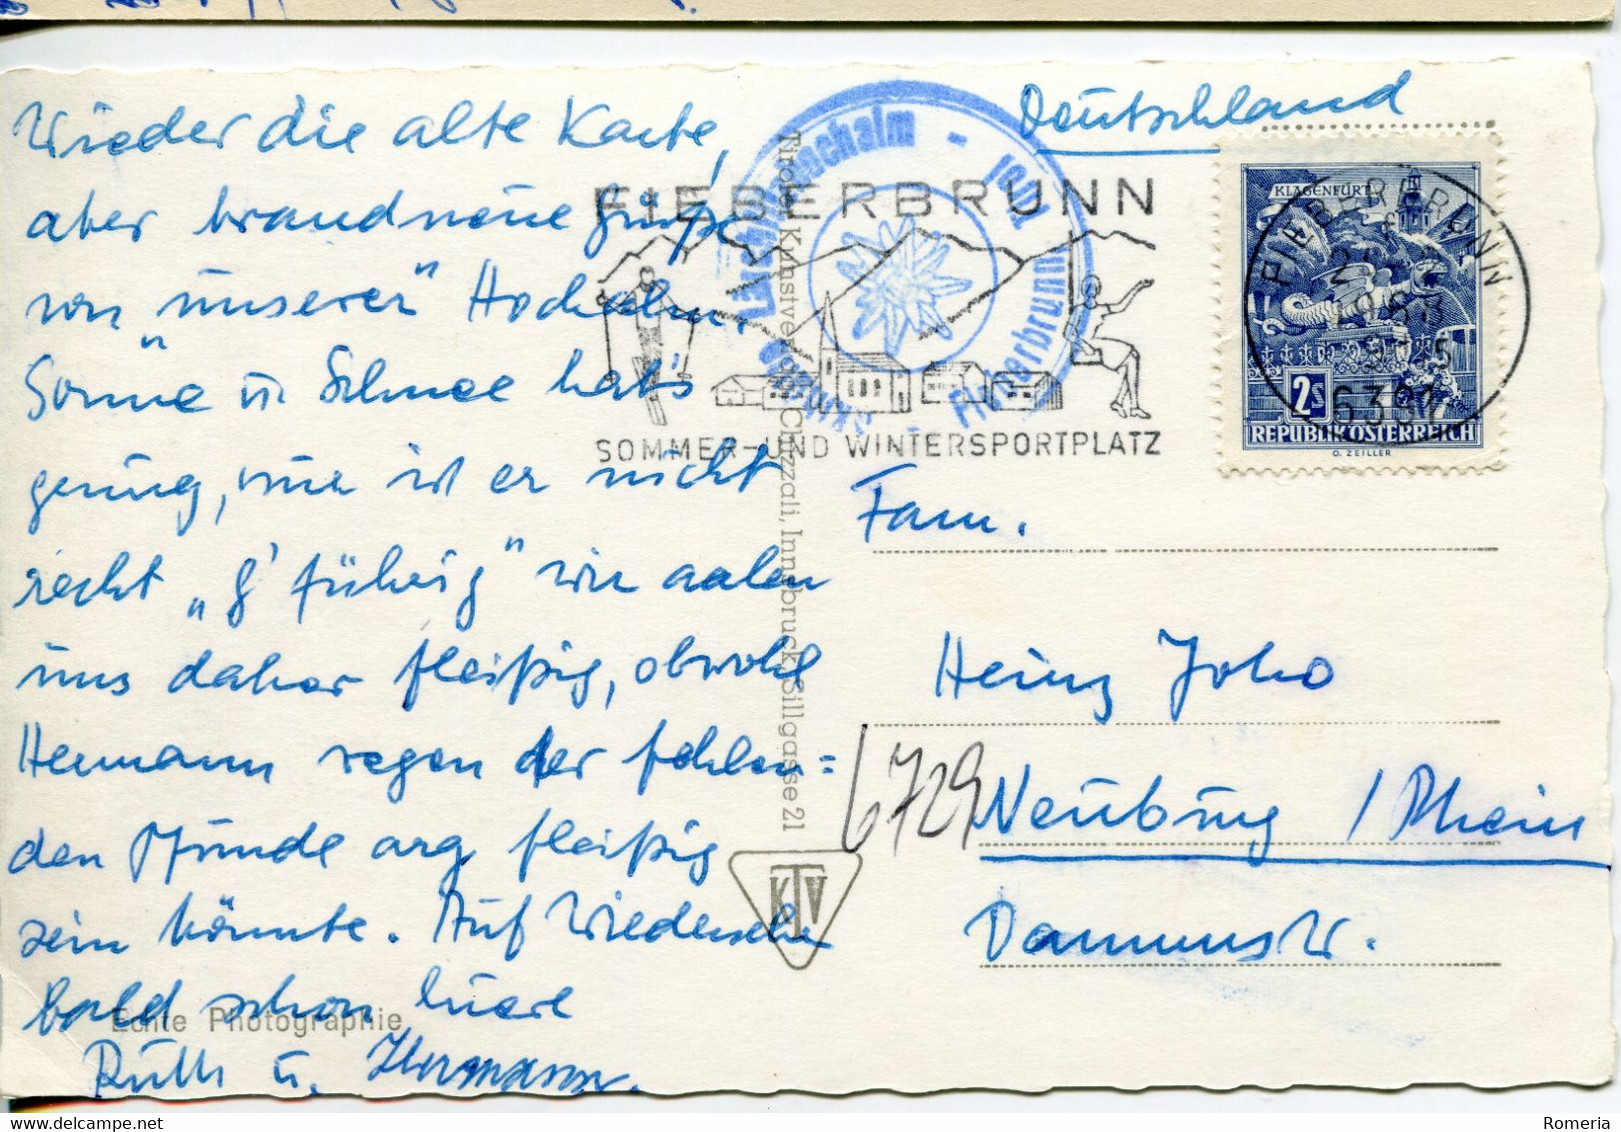 Wieder die alte Karte,
aber brandneue Grüße
von "unserer" Hochalm.
Sonne u. Schnee hat's
genug, nur ist er nicht
recht „g'führig" wir aalen
uns daher fleißig, obwohl
Hermann wegen der fehlen=
den Pfunde arg fleißig
sein könnte. Auf Wiedersehen
bald schon Eure
Ruth u. Hermann.
Echte Photographie
Tiroler Kunstverlag Chizzali, Innsbruck, Sillgasse 21
KTV
FIEBERBRUNN
SOMMER-UND WINTERSPORTPLATZ
Fieberbrunn
Deutschland
KLAGENFURT
2S
REPUBLIK ÖSTERREICH
O. ZEILLER
FIEBERBRUNN
Fam.
Heinz Joho
6729 Neuburg / Rhein
Dammstr.
Romeria